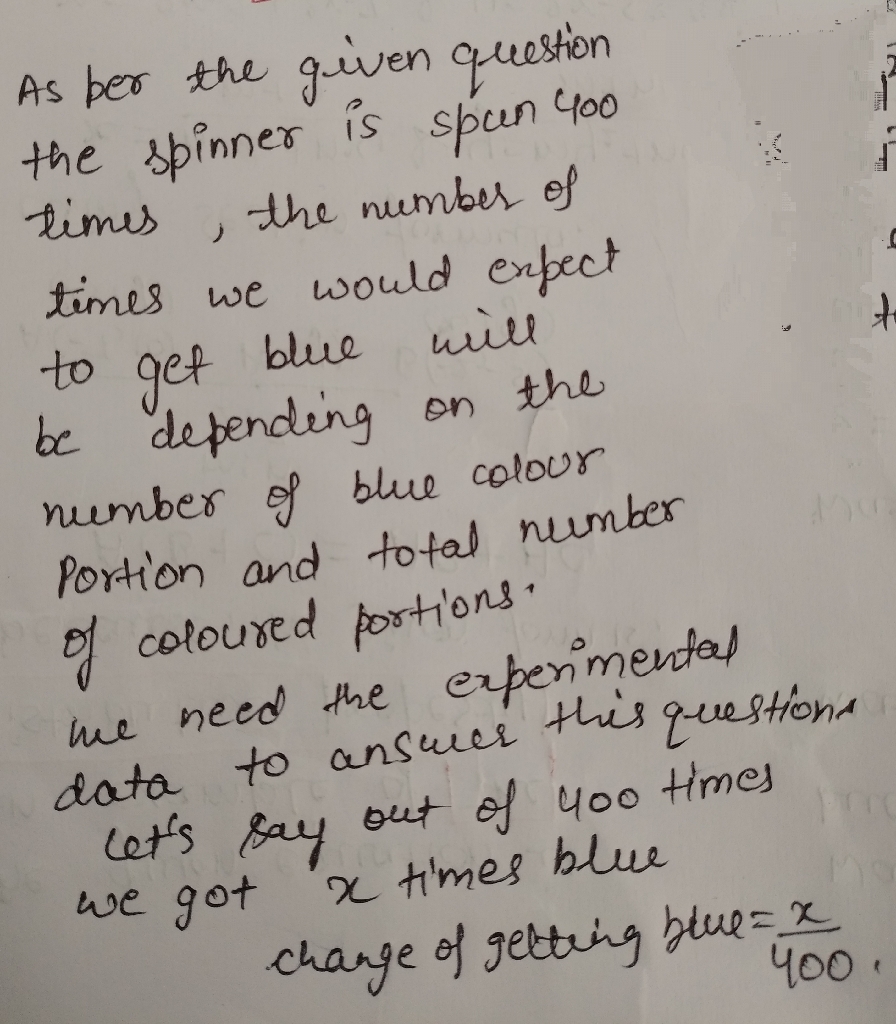 As per the given question
the spinner is spun 400
times , the number of
times we would expect
to get blue will
be depending on the
number of blue colour
Portion and total number
of coloured portions.
we need the experimental
data to answer this question.
let's say out of 400 times
we got x times blue
change of getting blue = x/400.